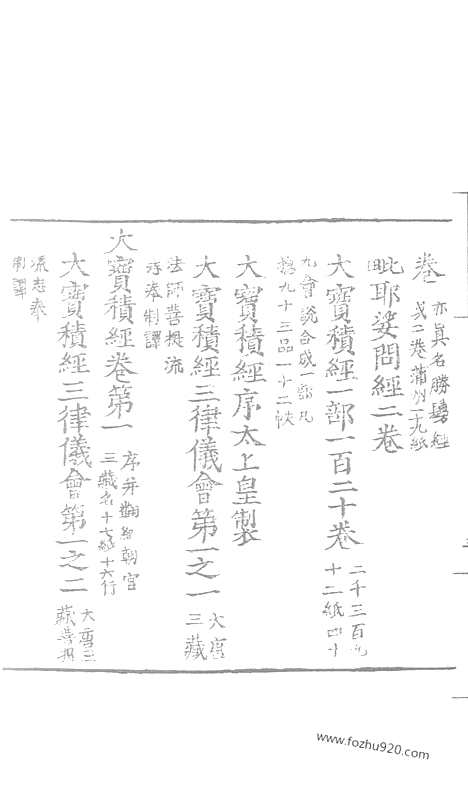 卷 亦眞名勝鬘經
或二卷蒲州一九紙
毗耶娑問經二卷
大寶積經一部一百二十卷 二千三百九
十二紙四十
九會說合成一部凡
九十三品一十二帙
大寶積經序太上皇製
大寶積經三律儀會第一之一 大唐
三藏
法師菩提流
志奉制譯
大寶積經卷第一 序并翻朝官
三藏名十七紙十六行
大寶積經三律儀會第一之二 大唐三
藏菩提
流志奉
制譯
www.fozhu920.com